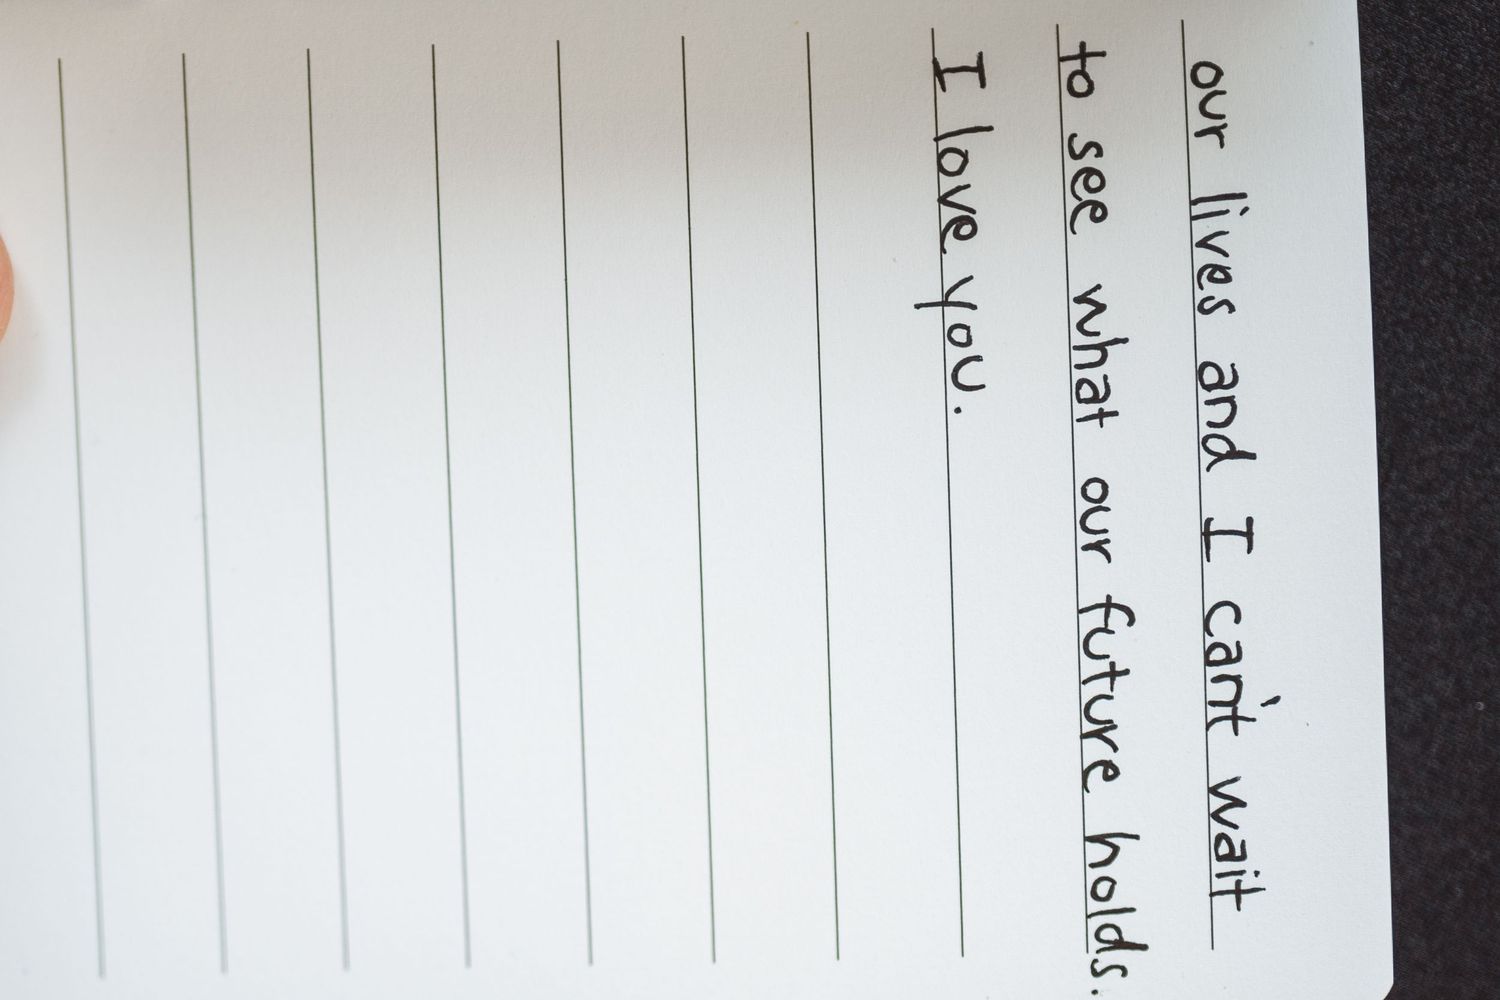 our lives and I can't wait
to see what our future holds.
I love you.